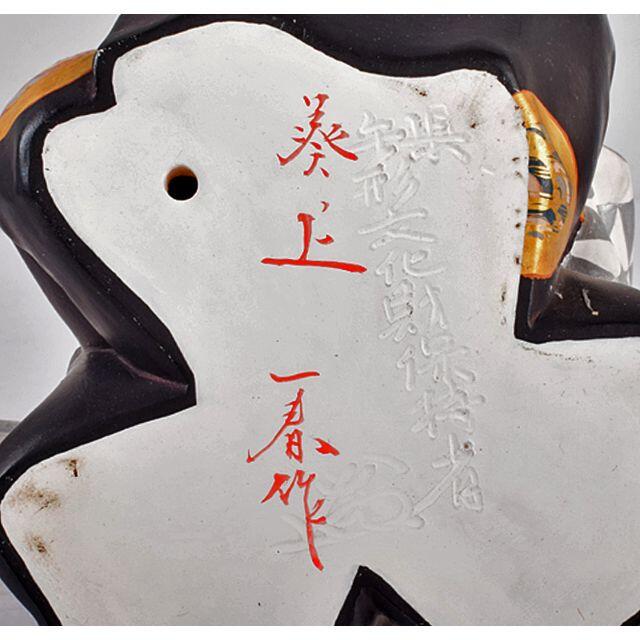 県無形文化財保持者
葵上
一春作